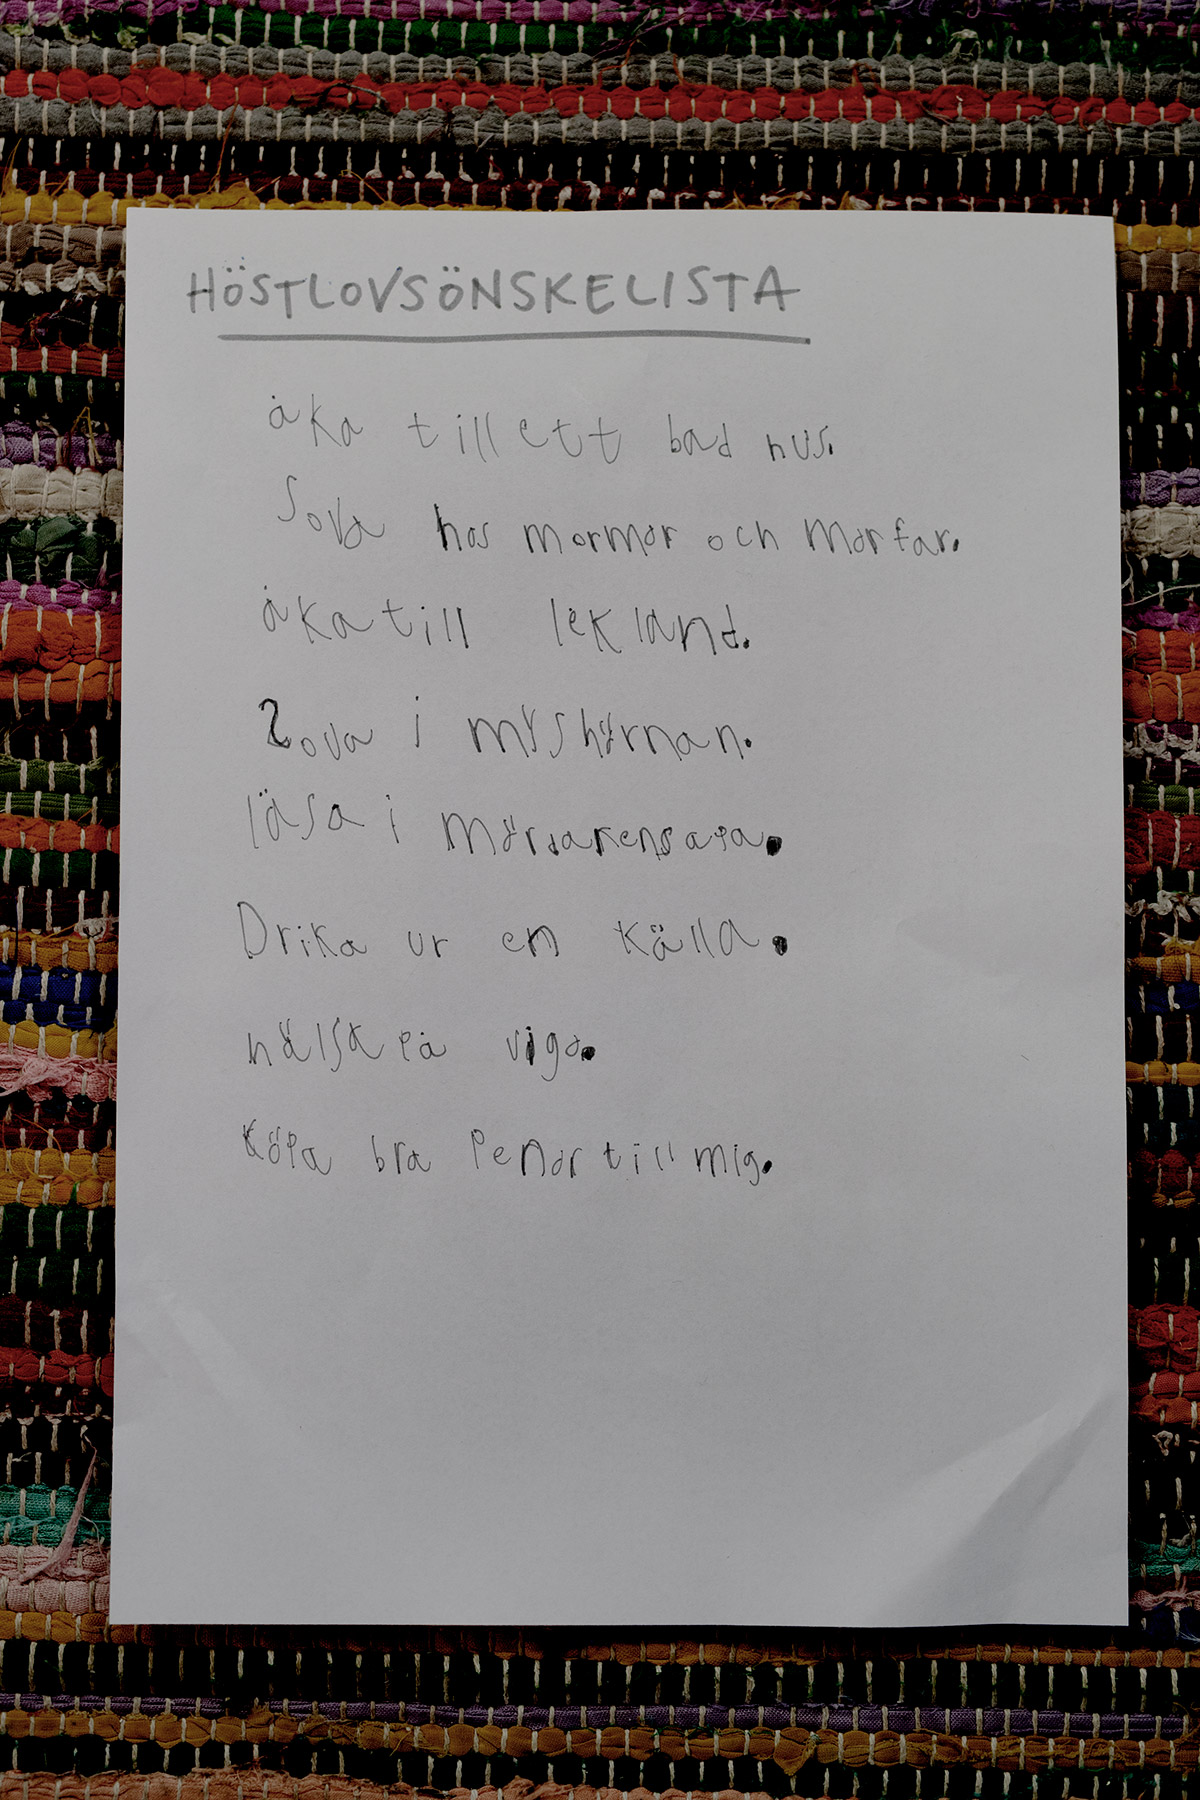 HÖSTLOVSÖNSKELISTA
åka till ett bad hus.
Sova hos mormor och morfar.
åka till lekland.
Sova i myshörnan.
läsa i
Drika ur en källa.
hälsa på vigo.
Köpa bra penor till mig.